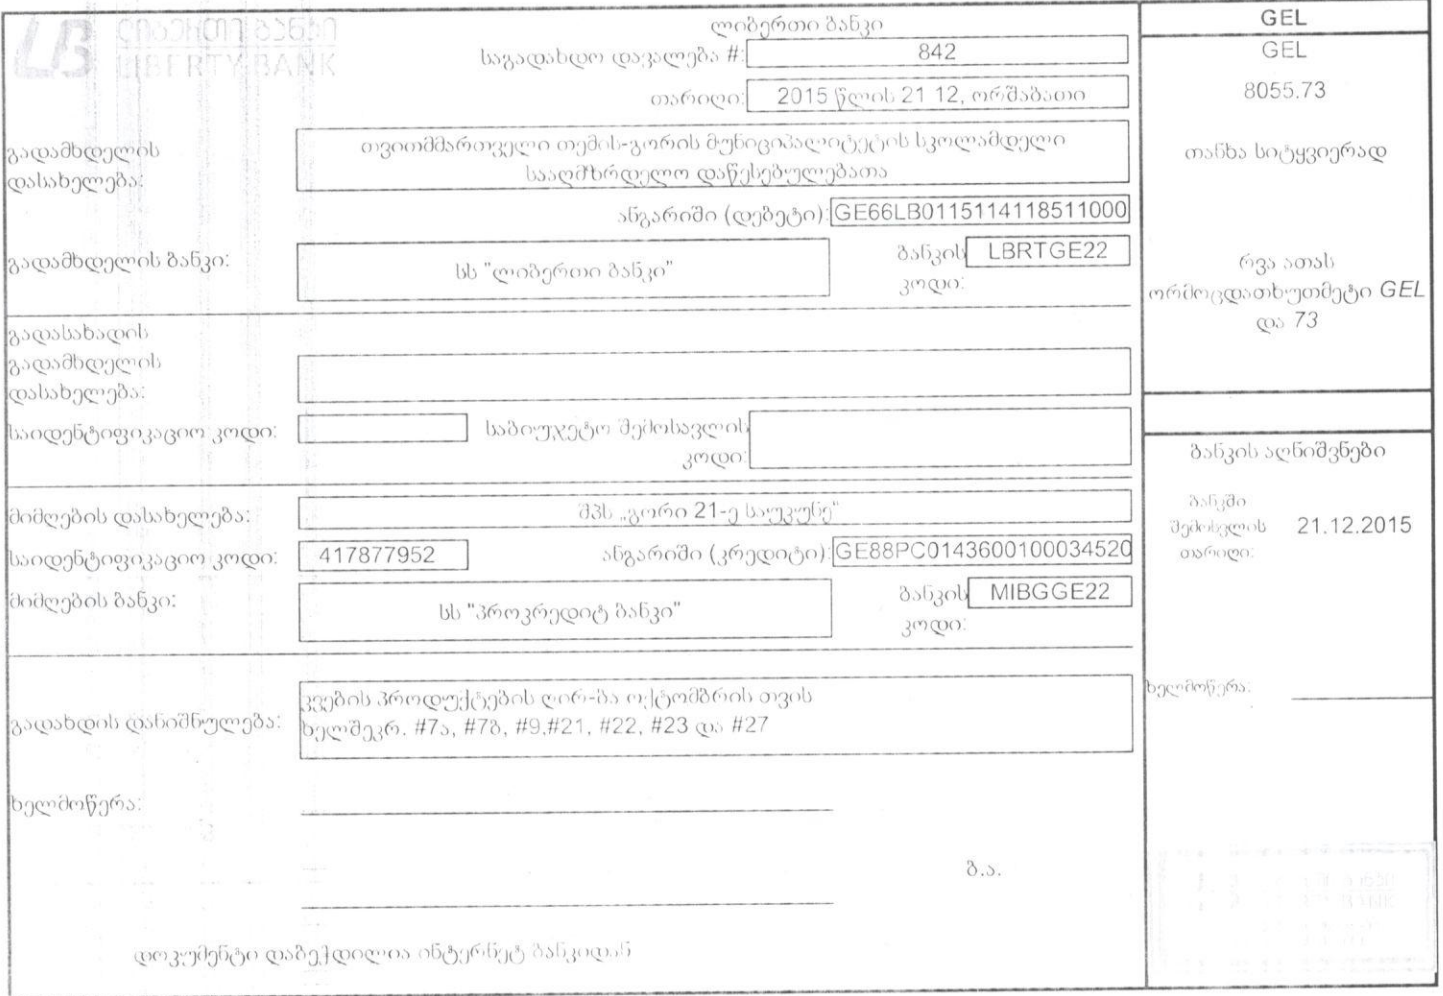 ლიბერთი ბანკი
LIBERTY BANK
ლიბერთი ბანკი
საგადახდო დავალება #: 842
თარიღი: 2015 წლის 21 12, ორშაბათი
გადამხდელის
დასახელება:
თვითმმართველი თემის-გორის მუნიციპალიტეტის სკოლამდელი
სააღმზრდელო დაწესებულებათა
ანგარიში (დებეტი): GE66LB0115114118511000
გადამხდელის ბანკი: სს "ლიბერთი ბანკი" ბანკის LBRTGE22
კოდი:
გადასახადის
გადამხდელის
დასახელება:
საიდენტიფიკაციო კოდი: საბიუჯეტო შემოსავლის
კოდი:
მიმღების დასახელება: შპს „გორი 21-ე საუკუნე“
საიდენტიფიკაციო კოდი: 417877952 ანგარიში (კრედიტი): GE88PC0143600100034520
მიმღების ბანკი: სს "პროკრედიტ ბანკი" ბანკის MIBGGE22
კოდი:
გადახდის დანიშნულება:
კვების პროდუქტების ღირ-ბა ოქტომბრის თვის
ხელშეკრ. #7ა, #7ბ, #9,#21, #22, #23 და #27
ხელმოწერა:
ბ.ა.
დოკუმენტი დაბეჭდილია ინტერნეტ ბანკიდან
GEL
GEL
8055.73
თანხა სიტყვიერად
რვა ათას
ორმოცდათხუთმეტი GEL
და 73
ბანკის აღნიშვნები
ბანკში
შემოსვლის 21.12.2015
თარიღი:
ხელმოწერა: